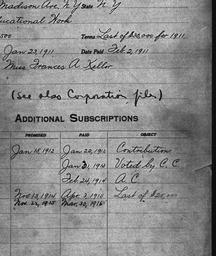 Madison Ave, N.Y. State N.Y.
Educational Work
500 Terms Last of $2000 for 1911
Jan 23, 1911 Date Paid Feb 2, 1911
Miss Frances A Kellor
(See also Corporation files)
ADDITIONAL SUBSCRIPTIONS
PROMISED PAID OBJECT
Jan 18, 1912 Jan 22, 1912 Contribution
Jan 31, 1914 Voted by C.C
Feb 24, 1914 A.C
Nov 13, 1914 Apr 2, 1915 Last of $2000
Nov 22, 1915 Mar 30, 1916